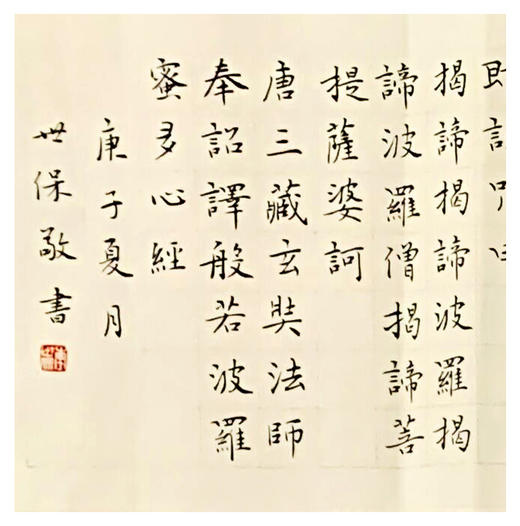 即說咒曰
揭諦揭諦波羅揭
諦波羅僧揭諦菩
提薩婆訶
唐三藏玄奘法師
奉詔譯般若波羅
蜜多心經
庚子夏月
世保敬書